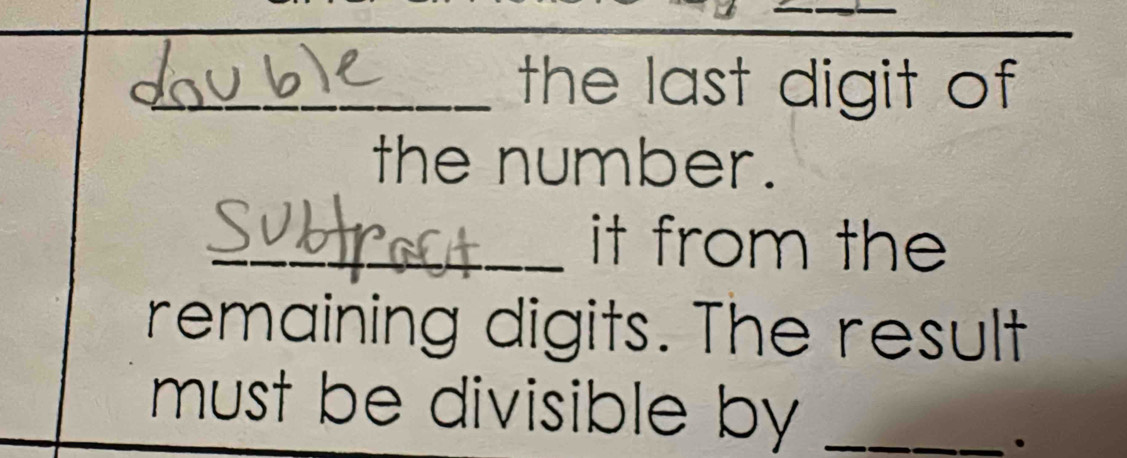 double the last digit of
the number.
subtract it from the
remaining digits. The result
must be divisible by ____.